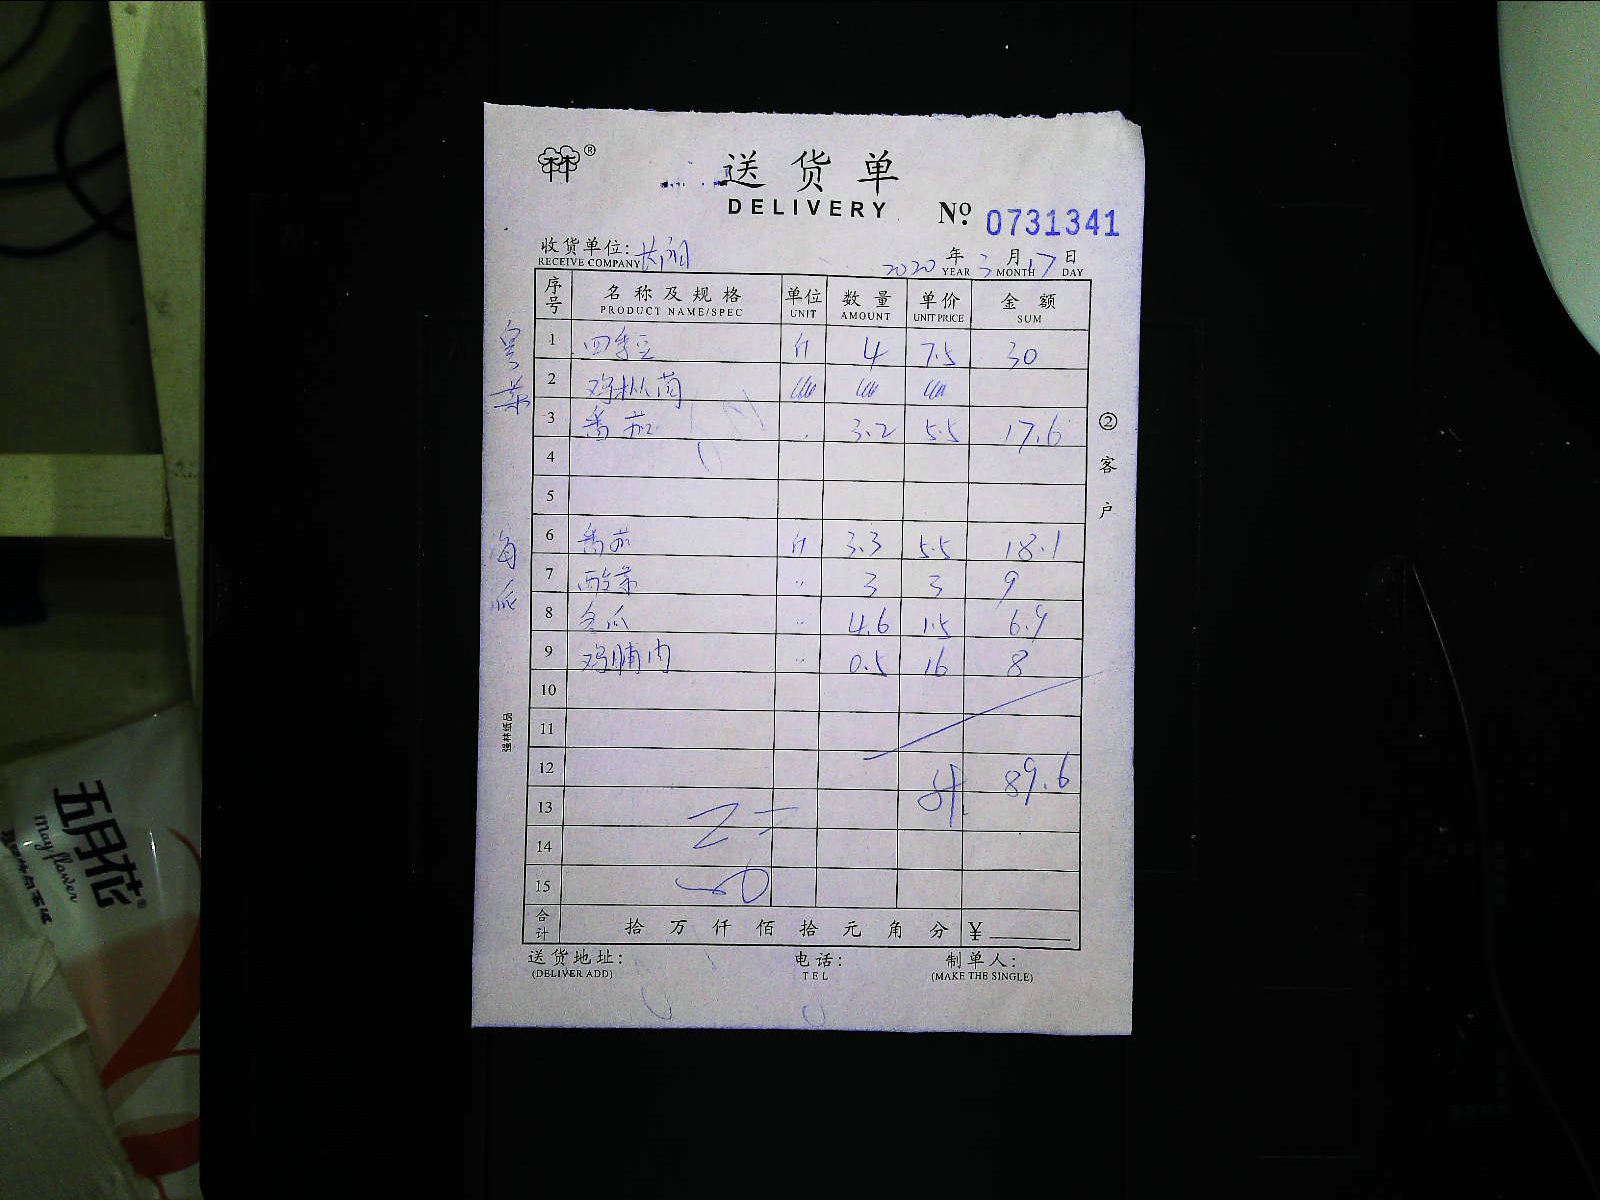 ®
送货单
DELIVERY
Nº 0731341
收货单位:
RECEIVE COMPANY
2020 年 YEAR 3 月 MONTH 17 日 DAY
序号 名称及规格 PRODUCT NAME/SPEC 单位 UNIT 数量 AMOUNT 单价 UNIT PRICE 金额 SUM
1 四季豆 斤 4 7.5 30
2 鸡枞菌
3 番茄 3.2 5.5 17.6
4
5
6 番茄 斤 3.3 5.5 18.1
7 酸菜 " 3 3 9
8 冬瓜 " 4.6 1.5 6.9
9 鸡脯肉 " 0.5 16 8
10
11
12 89.6
13
14
15
合计 拾 万 仟 佰 拾 元 角 分 ¥
送货地址: 电话: 制单人:
(DELIVER ADD) TEL (MAKE THE SINGLE)
②客户
海派
强林纸品
五月花®
Mayflower